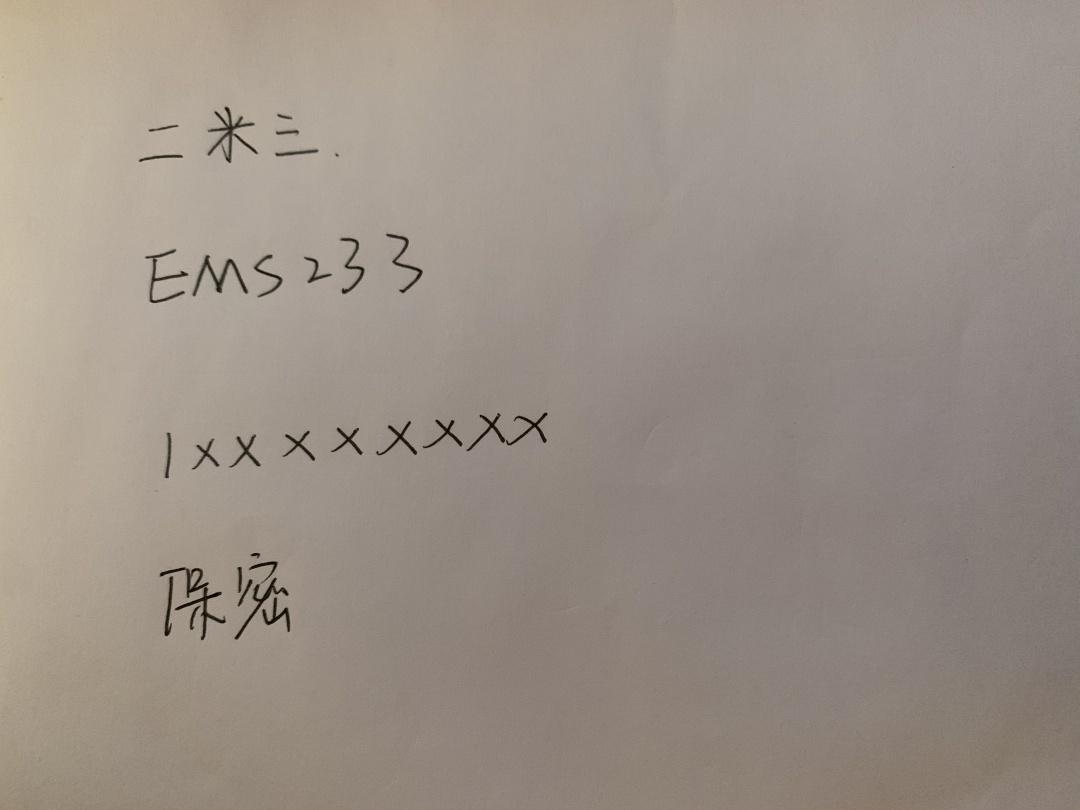 二米三.
EMS233
1xxxxxxxx
保密